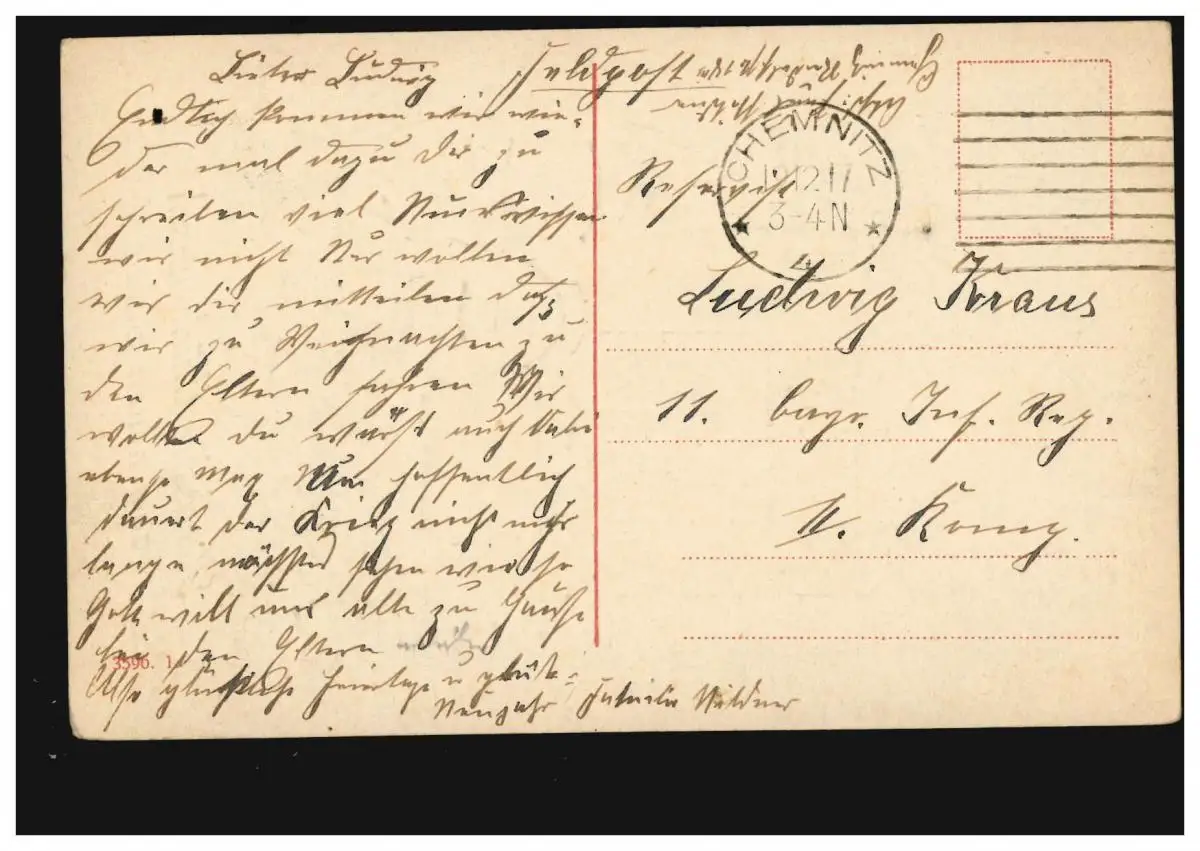 Lieber Ludwig
Endlich kommen wir wie-
der mal dazu Dir zu
schreiben viel Neues wissen
wir nicht Nur wollen
wir dir mitteilen daß
wir zu Weihnachten zu
den Eltern fahren Wir
wollte du wärst auch
Nun hoffentlich
dauert der Krieg nicht mehr
lange, nächstes sehen wir so
Gott will uns alle zu Hause
bei den Eltern wieder
Also glückliche Feiertage u glückl.
Neujahr Familie Wildner
3596. 1
Feldpost
Chemnitz
CHEMNITZ
12 17
3-4 N
4
Reservist
Ludwig Kraus
11. bayr. Inf. Reg.
II. Komp.